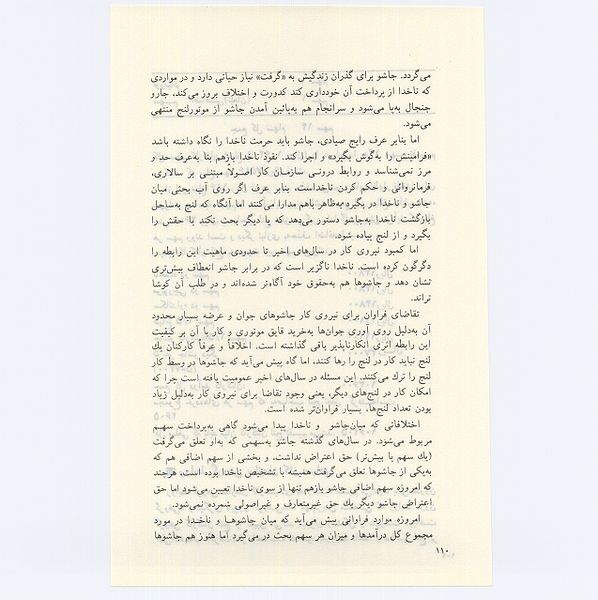 می‌گردد. جاشو برای گذران زندگیش به «گرفت» نیاز حیاتی دارد و در مواردی
که ناخدا از پرداخت آن خودداری کند کدورت و اختلاف بروز می‌کند، جارو
جنجال به‌پا می‌شود و سرانجام هم به‌پائین آمدن جاشو از موتورلنج منتهی
می‌شود.
اما بنابر عرف رایج صیادی، جاشو باید حرمت ناخدا را نگاه داشته باشد
«فرامینش را به‌گوش بگیرد» و اجرا کند. نفوذ ناخدا بازهم بنا به‌عرف حد و
مرز نمی‌شناسد و روابط درونی سازمان کار اصولا مبتنی بر سالاری،
فرمانروائی و حکم کردن ناخداست، بنابر عرف اگر روی آب بحثی میان
جاشو و ناخدا در بگیرد به‌ظاهر باهم مدارا می‌کنند اما آنگاه که لنج به‌ساحل
بازگشت ناخدا به‌جاشو دستور می‌دهد که یا دیگر بحث نکند یا حقش را
بگیرد و از لنج پیاده شود.
اما کمبود نیروی کار در سال‌های اخیر تا حدودی ماهیت این رابطه را
دگرگون کرده است. ناخدا ناگزیر است که در برابر جاشو انعطاف بیش‌تری
نشان دهد و جاشوها هم به‌حقوق خود آگاه‌تر شده‌اند و در طلب آن کوشا
تراند.
تقاضای فراوان برای نیروی کار جاشوهای جوان و عرضه بسیار محدود
آن به‌دلیل روی آوری جوان‌ها به‌خرید قایق موتوری و کار با آن بر کیفیت
این رابطه اثری انکارناپذیر باقی گذاشته است. اخلاقاً و عرفاً کارکنان یك
لنج نباید کار در لنج را رها کنند، اما گاه پیش می‌آید که جاشوها در وسط کار
لنج را ترك می‌کنند. این مسئله در سال‌های اخیر عمومیت یافته است چرا که
امکان کار در لنج‌های دیگر، یعنی وجود تقاضا برای نیروی کار به‌دلیل زیاد
بودن تعداد لنج‌ها، بسیار فراوان‌تر شده است.
اختلافاتی که میان‌جاشو و ناخدا پیدا می‌شود گاهی به‌پرداخت سهم
مربوط می‌شود. در سال‌های گذشته جاشو به‌سهمی که به‌او تعلق می‌گرفت
(یك سهم یا بیش‌تر) حق اعتراض نداشت، و بخشی از سهم اضافی هم که
به‌یکی از جاشوها تعلق می‌گرفت همیشه با تشخیص ناخدا بوده است، هرچند
که امروزه سهم اضافی جاشو بازهم تنها از سوی ناخدا تعیین می‌شود اما حق
اعتراض جاشو دیگر یك حق غیرمتعارف و غیراصولی شمرده نمی‌شود.
امروزه موارد فراوانی پیش می‌آید که میان جاشوها و ناخدا در مورد
مجموع کل درآمدها و میزان هر سهم بحث در می‌گیرد اما هنوز هم جاشوها
۱۱۰